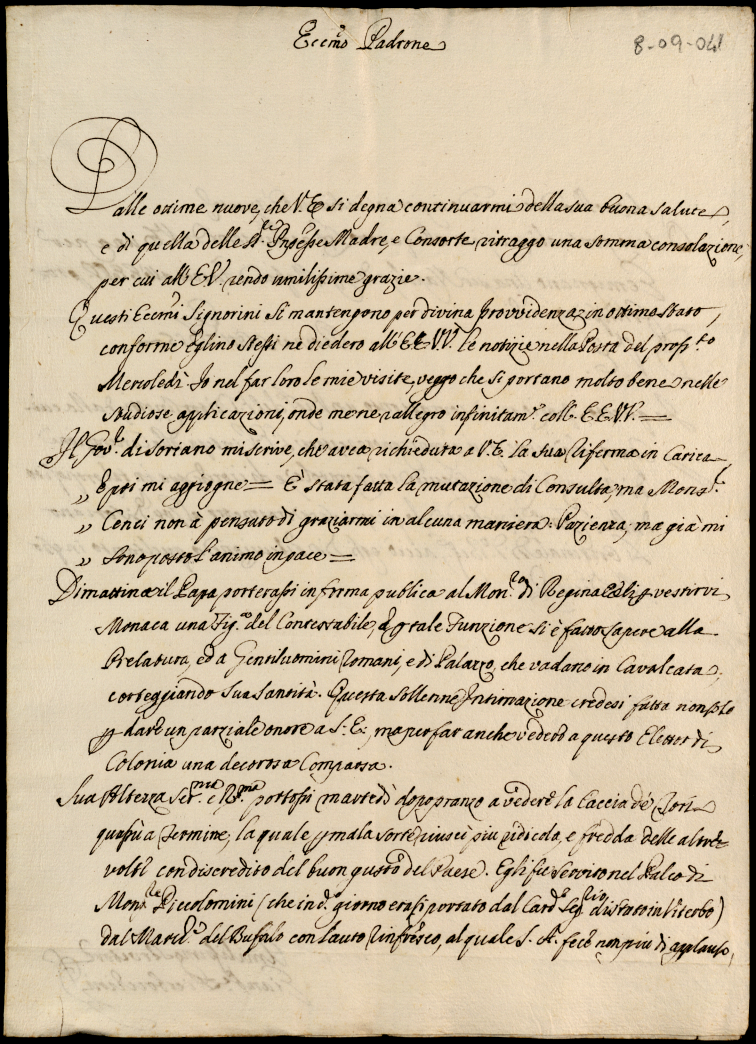 Eccmo Padrone
8-09-04
Dalle ottime nuove, che V.E. si degna continuarmi della sua buona salute,
e di quella delle Prnpesse Madre, e Consorte ritraggo una somma consolazione,
per cui all'E.V. rendo umilissime grazie.
Questi Eccmi Signorini si mantengono per divina Provvidenza in ottimo stato,
conforme Eglino stessi ne diedero all'EE.VV. le notizie nella Posta del pross.to
Mercoledì. Io nel far loro le mie visite, veggo che si portano molto bene nelle
studiose applicazioni, onde me ne rallegro infinitam.e coll'EE.VV. =
Il Gov.r di Soriano mi scrive, che avea richieduta a V.E. la sua Riferma in Carica
„ E poi mi aggiogne = È stata fatta la mutazione di Consulta, ma Mons.r
„ Cenci non à pensato di graziarmi in alcuna maniera: Pazienza, ma già mi
„ sono posto l'animo in pace =
Dimattina il Papa porterassi in forma publica al Mon.ro di Regina Celi p vestirvi
Monaca una Fig.a del Contestabile, e p tale Funzione si è fatto sapere alla
Prelatura, ed a Gentiluomini Romani, e di Palazzo, che vadano in Cavalcata,
corteggiando Sua Santità. Questa sollenne Intimazione credesi fatta non solo
p dare un parziale onore a S.E., ma per far anche vedere a questo Elettor di
Colonia una decorosa Comparsa.
Sua Altezza Ser.ma e R.ma portossi martedì dopopranzo a vedere la Caccia de' Tori
quassù a Termine, la quale p mala sorte riuscì piu ridicola, e fredda delle altre
volte con discredito del buon gusto del Paese. Egli fu servito nel Palco di
Mons.re Piccolomini (che in d.o giorno erasi portato dal Card.e Seg.rio di Stato in Viterbo)
dal March.e del Bufalo con lauto Rinfresco, al quale S.A. fece non piu di applauso,